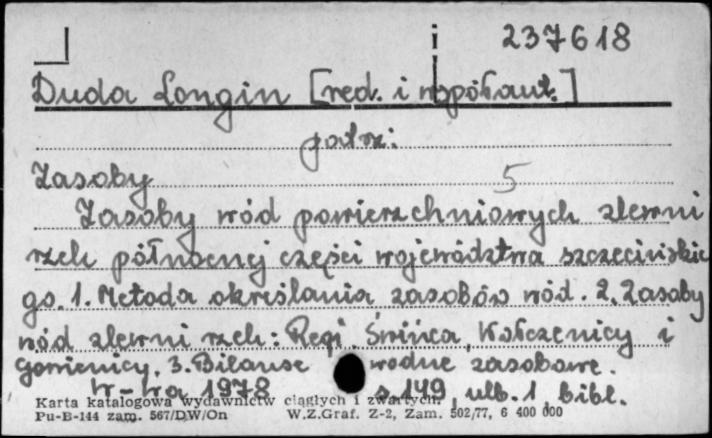 237618
Duda Longin [red. i współaut.]
patrz:
Zasoby 5
Zasoby wód powierzchniowych zlewni
rzek północnej części województwa szczecińskie
go. 1. Metoda określania zasobów wód. 2. Zasoby
wód zlewni rzek: Regi, Świńca, Kołczenicy i
Gowienicy. 3. Bilanse wodne zasobowe.
W-wa 1978 s. 149, ulb. 1, bibl.
Karta katalogowa wydawnictw ciągłych i zwartych.
Pu-B-144 zam. 567/DW/On W.Z.Graf. Z-2, Zam. 502/77, 6 400 000